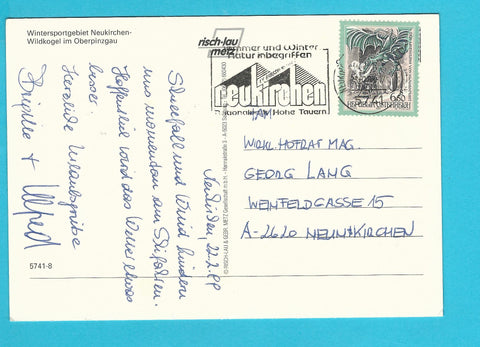 Wintersportgebiet Neukirchen-
Wildkogel im Oberpinzgau
risch-lau
metz
Sommer und Winter
Natur inbegriffen
neukirchen
Nationalpark Hohe Tauern
650
Neukirchen, 22.2.99
Schneefall und Wind hindern
uns momentan am Skifahren.
Hoffentlich wird das Wetter etwas
besser.
Herzliche Urlaubsgrüße
Brigitte + Alfred
AM
WIRKL. HOFRAT MAG.
GEORG LANG
WEINFELDGASSE 15
A-2620 NEUNKIRCHEN
5741-8